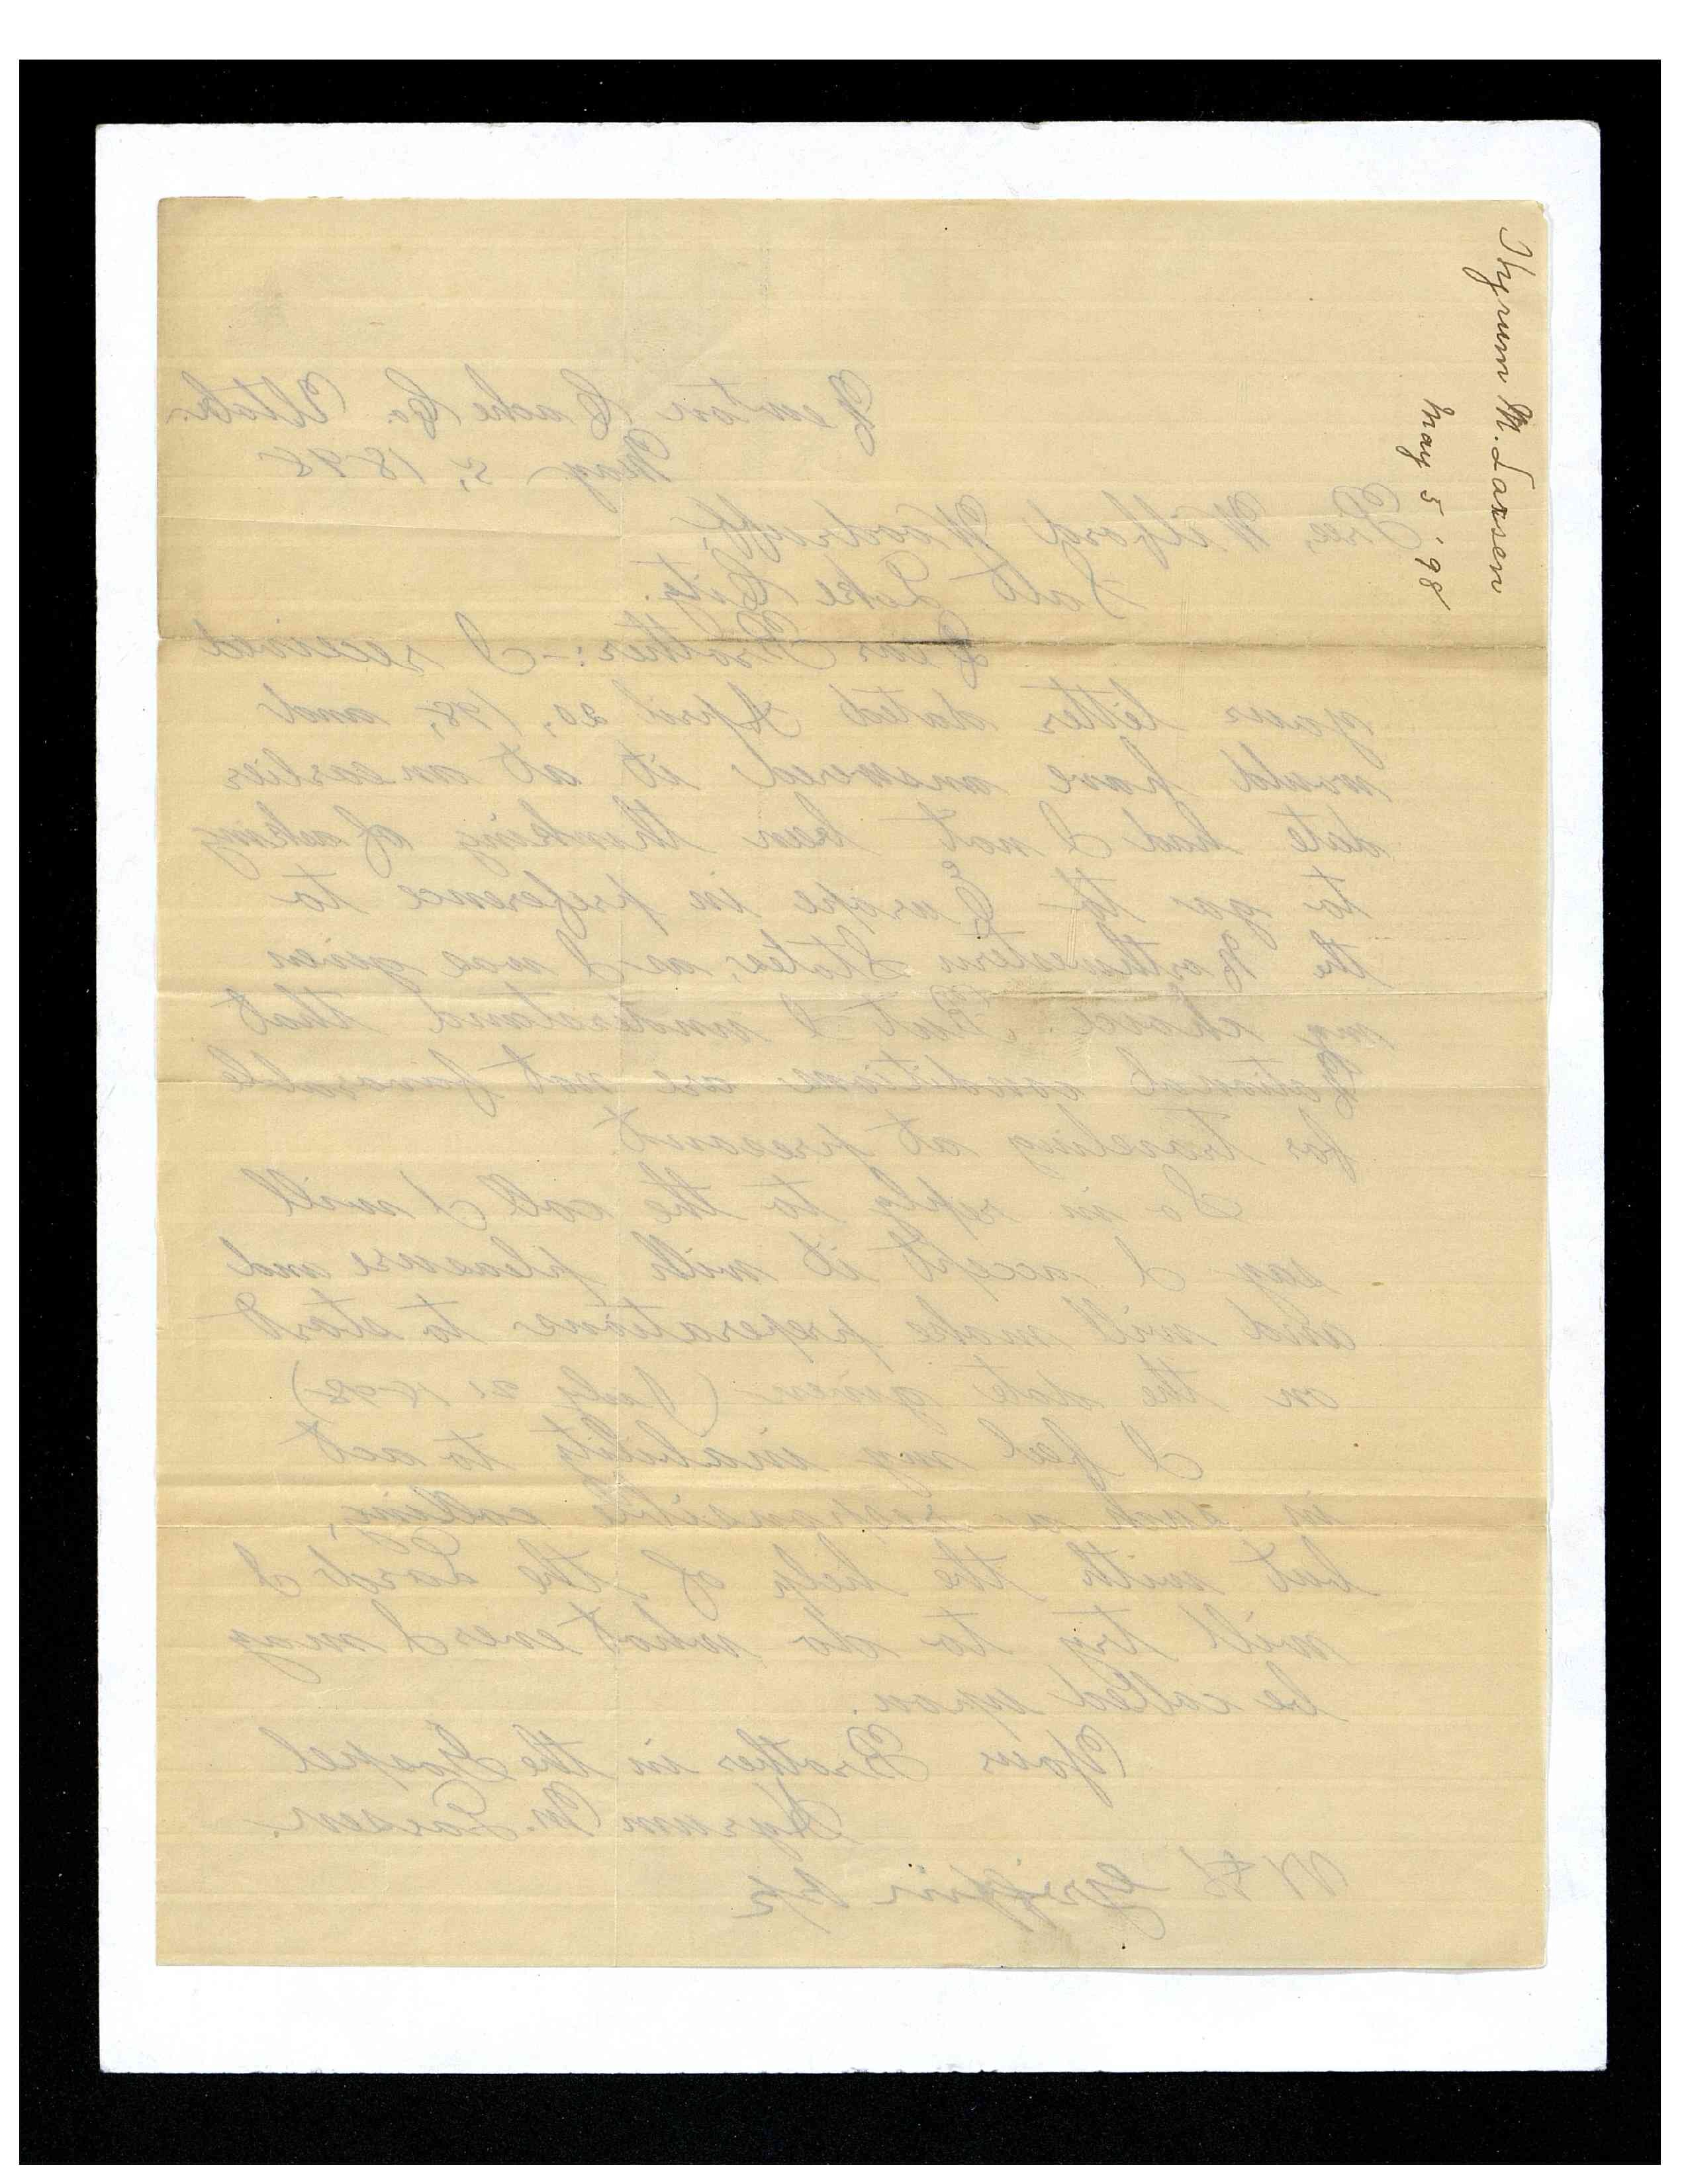 Hyrum M. Larsen
May 5 '98
Newton Cache Co. Utah.
May 5, 1898
Pre, Wilford Woodruff,
Salt Lake City.
Dear Brother:- I received
your letter dated April 20, 198, and
would have answered it at an earlier
date had I not been thinking of asking
to go to Europe in preference to
the Northwestern States, as I was given
my choice. But I understand that
National conditions are not favorable
for traveling at present.
So in reply to the call I will
say I accept it with pleasure and
and will make preperations to start
on the date given (July 21 1898)
I feel my inability to act
in such a responsible calling,
but with the help of the Lord I
will try to do what ever I may
be called upon.
Your Brother in the Gospel
Hyrum M. Larsen.
W H Griffin Bp